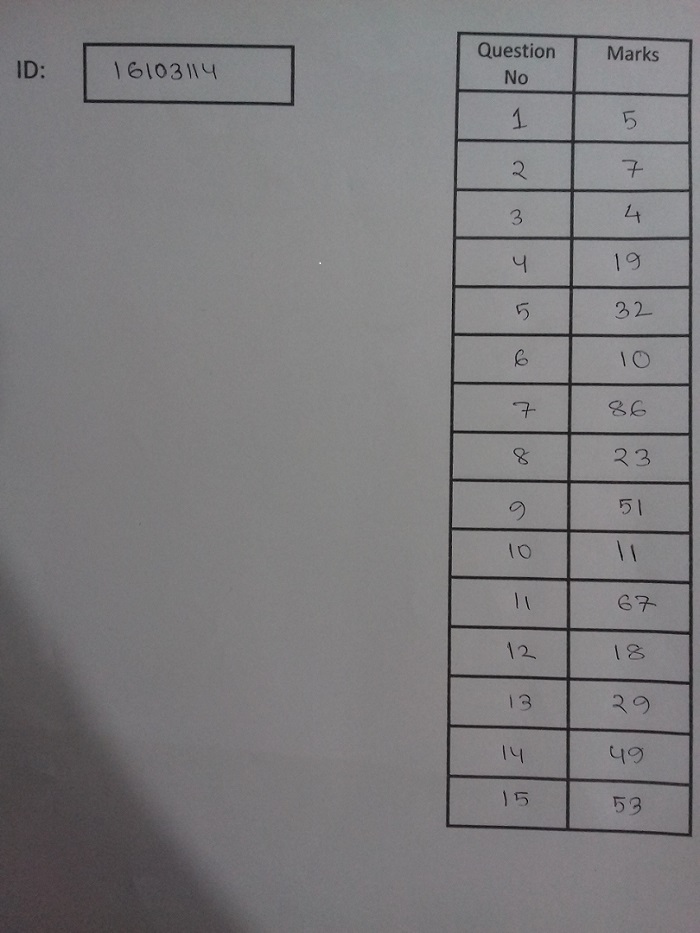 ID: 16103114
Question No Marks
1 5
2 7
3 4
4 19
5 32
6 10
7 86
8 23
9 51
10 11
11 67
12 18
13 29
14 49
15 53